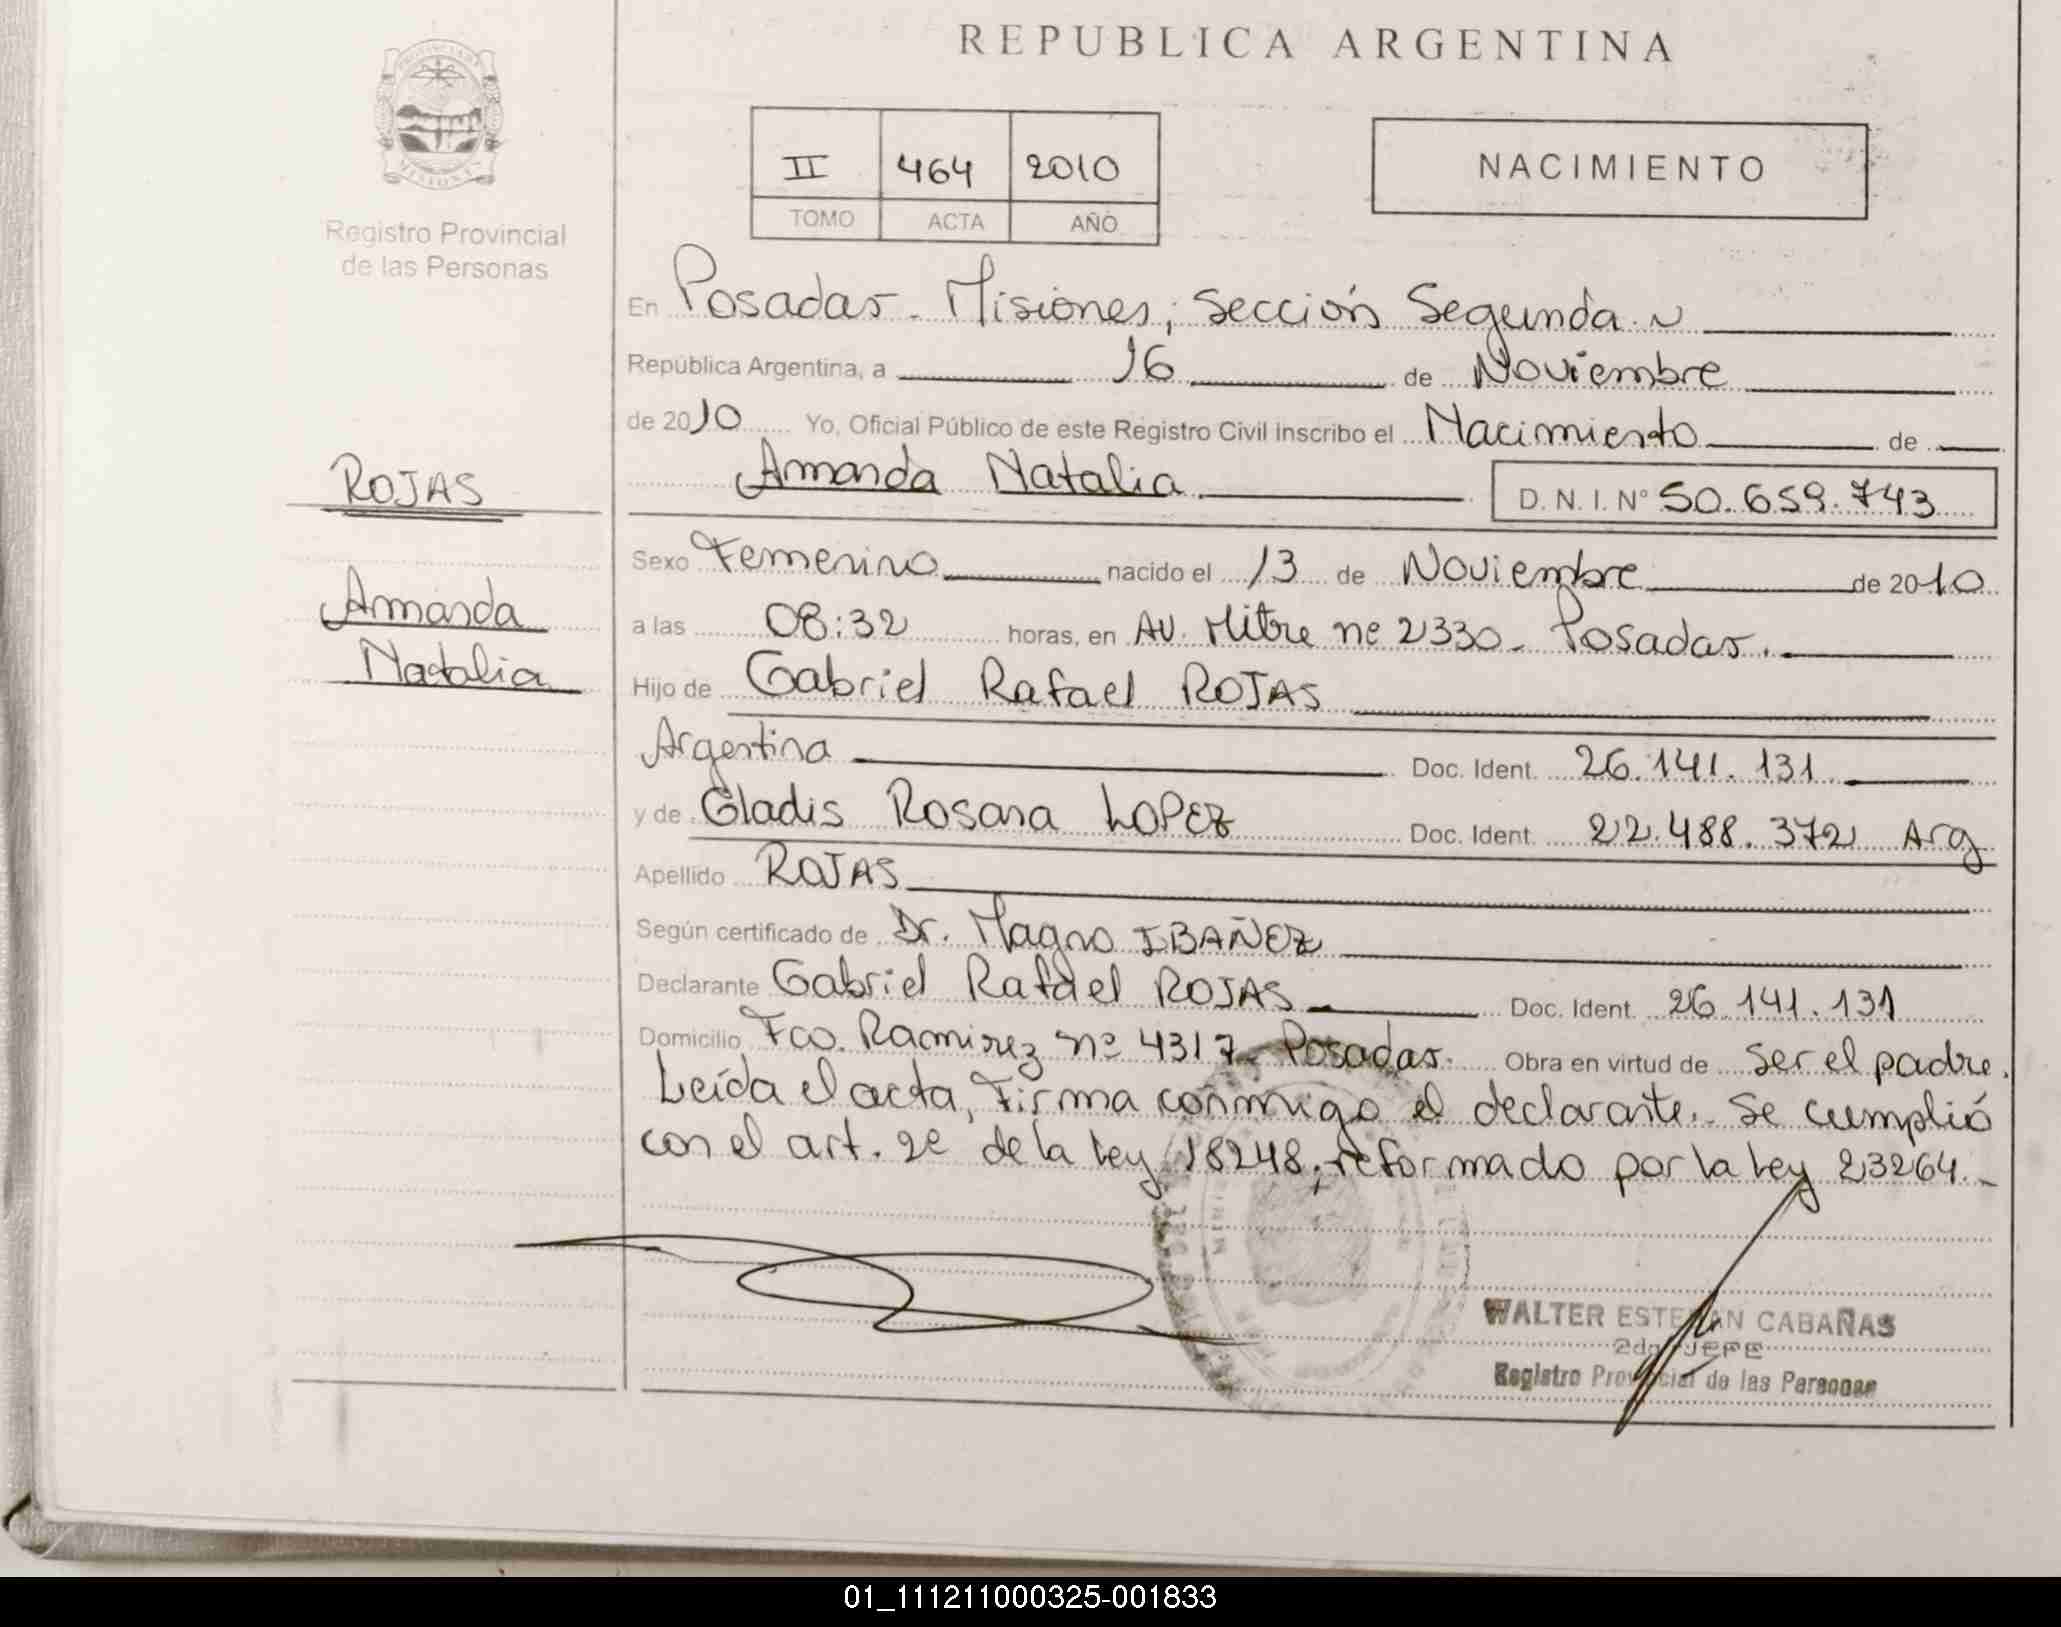 REPUBLICA ARGENTINA
II 464 2010
TOMO ACTA AÑO
NACIMIENTO
Registro Provincial
de las Personas
ROJAS
Amanda
Natalia
En Posadas - Misiones; Sección Segunda.
República Argentina, a 16 de Noviembre
de 2010 Yo, Oficial Público de este Registro Civil inscribo el Nacimiento de
Amanda Natalia D. N. I. Nº 50.659.743
Sexo Femenino nacido el 13 de Noviembre de 2010
a las 08:32 horas, en AV. Mitre nº 2330 - Posadas.
Hijo de Gabriel Rafael ROJAS
Argentina Doc. Ident. 26.141.131
y de Gladis Rosana LOPEZ Doc. Ident. 22.488.372 Arg
Apellido ROJAS
Según certificado de Dr. Magno IBAÑEZ
Declarante Gabriel Rafael ROJAS Doc. Ident. 26.141.131
Domicilio Fco. Ramirez nº 4317 - Posadas. Obra en virtud de ser el padre.
Leída el acta, firma conmigo el declarante. Se cumplió
con el art. 2º de la ley 18248, reformado por la ley 23264.-
WALTER ESTEBAN CABAÑAS
2do JEFE
Registro Provincial de las Personas
01_111211000325-001833